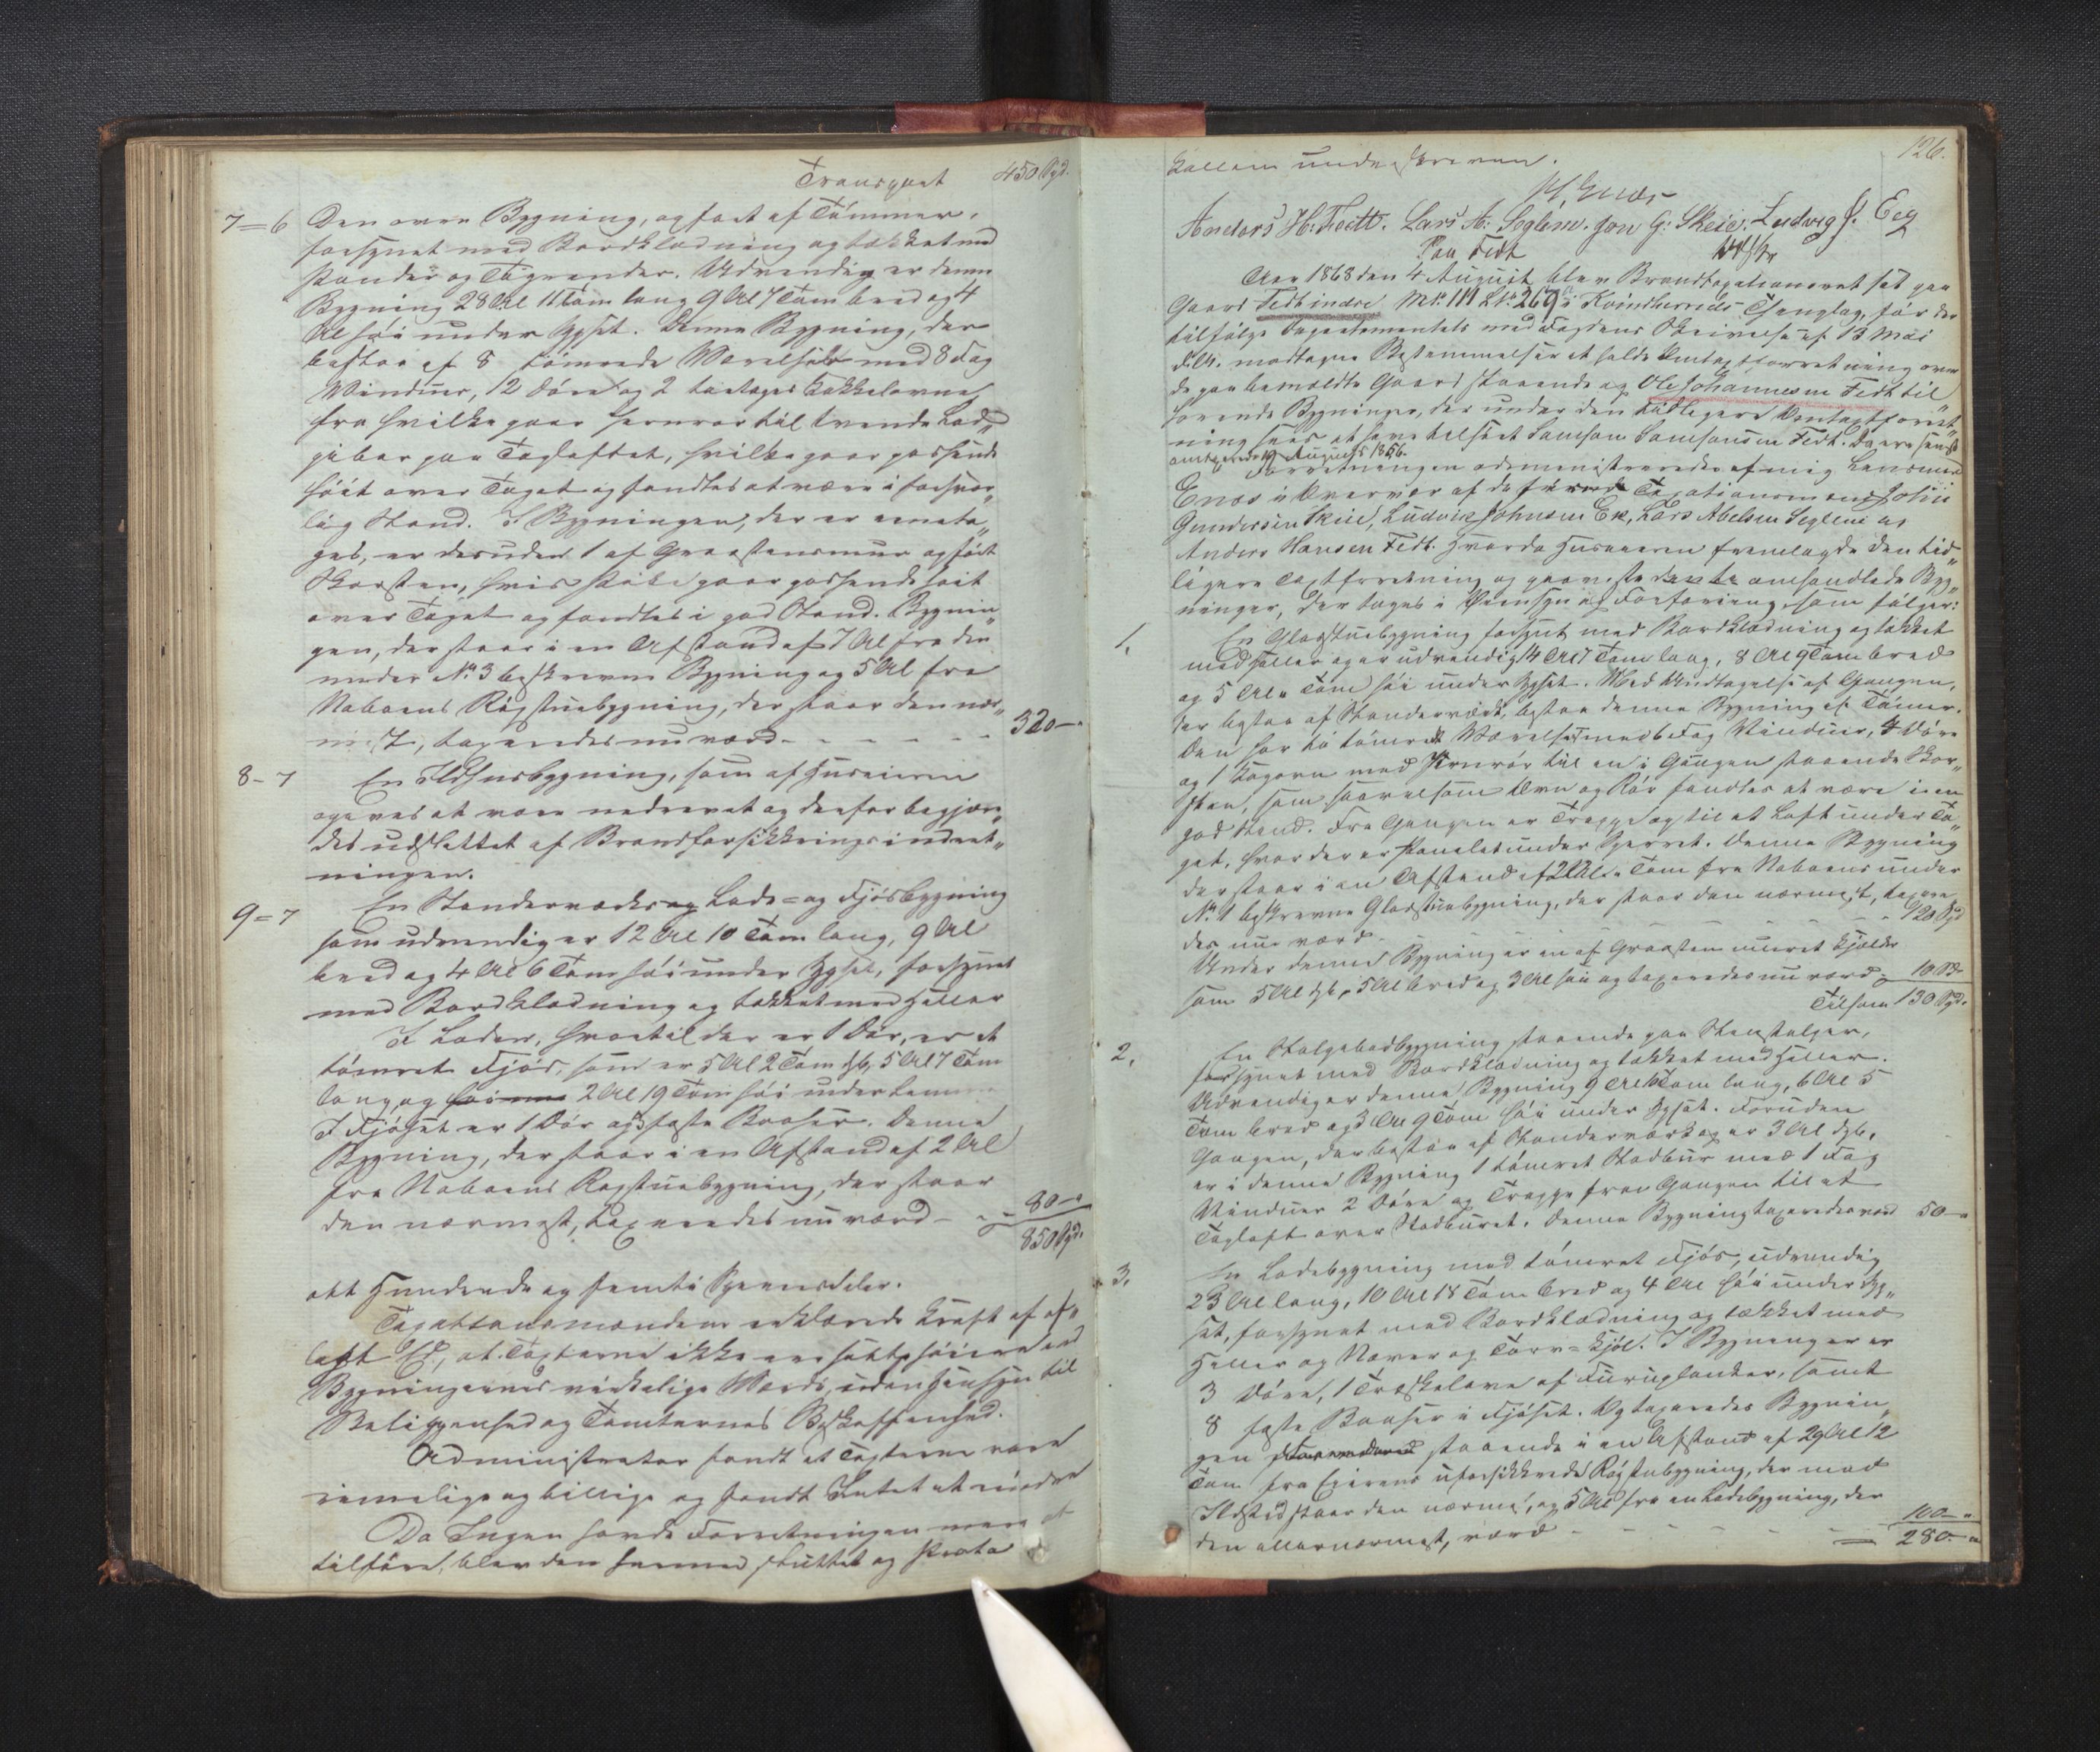 Transport 450 Spd.
7=6 Den øvre Bygning, opført af Tømmer,
forsynet med Bordklædning og tækket med
Pander og Tagrender. Udvendig er denne
Bygning 28 Al 11 Tom lang 9 Al 7 Tom bred og 4
Al høi under Gesset. Denne Bygning, der
bestaar af 8 tømrede Værelser med 8 Fag
Vinduer, 12 Døre og 2 toetages Kakkelovne
fra hvilke gaar Jernrør til tvende Lad„
piber paa Tagloftet, hvilke gaar passende
høit over Taget og fandtes at være i forsvar„
lig Stand. I Bygningen, der er eeneta„
ges, er desuden 1 af Graastensmur opført
Skorsten, hvis Pibe gaar passende høit
over Taget og fandtes i god Stand. Bygnin„
gen, der staar i en Afstand af 7 Al fra den
under No 3 beskrevne Bygning og 5 Al fra
Naboens Røgstuebygning, der staar den nær„
mest, taxeredes nu værd - - - - - 320 - "
8-7 En Ildhusbygning, som af Huseieren
opgaves at være nedrevet og derfor begjær„
des udslettet af Brandforsikkringsindret„
ningen.
9=7 En Standerværks og Lade= og Fjøsbygning
som udvendig er 12 Al 10 Tom lang, 9 Al
bred og 4 Al 6 Tom høi under Gesset, forsynet
med Bordklædning og tækket med Heller
I Laden, hvortil der er 1 Dør, er et
tømret Fjøs, som er 5 Al 2 Tom dyb, 5 Al 7 Tom
lang og 2 Al 19 Tom høi under
I Fjøset er 1 Dør og faste Baaser. Denne
Bygning, der staar i en Afstand af 2 Al
fra Naboens Røgstuebygning, der staar
den nærmest, taxeredes nu værd - - - 80 - "
850 Spd.
ott Hundrede og femti Speciesdaler.
Taxationsmændene erklærede Kraft af af„
lagt Ed, at Taxterne ikke ere satte høiere end
Bygningernes virkelige Værdi, uden Hensyn til
Beliggenhed og Tomternes Beskaffenhed.
Administrator fandt at Taxterne vare
rimelige og billige og fandt Intet at erindre
Da Ingen havde Forretningen mere at
tilføre, blev den hermed sluttet og Proto
126.
kollen underskreven.
Enæs
Anders H: Feett. Lars A: Seglem. Jon G: Skeie. Ludvig J. Eeg
Paa Fedt
Aar 1868 den 4 August blev Brandtaxationsret sat paa
Gaard Fedt indre Mt. 111 Lt. 269 i Kvindherreds Thinglag, før der
tilfølge Departementets med Fogdens Skrivelse af 13 Mai
d. A. modtagne Bestemmelse at holde Omtaxtforretning over
de paa bemældte Gaard staaende og Ole Johannesen Fedt til„
hørende Bygninger, der under den tidligere Omtaxtforret„
ning sees at have tilhørt Samson Samsonsen Fedt. De ere senest
omtaxerede August 1856.
Forretningen administreredes af mig Lensmand
Enæs i Overvær af de Taxationsmænd John
Gundersen Skeie, Ludvik Johnsen Ek, Lars Abelsen Seglem og
Anders Hansen Fedt. Hvorda Huseieren fremlagde den tid„
ligere Taxtforretning og paaviste de omhandlede Byg„
ninger, der toges i Øiensyn og Forfaring, som følger:
1. En Glasstuebygning forsynt med Bordklædning og tækket
med Heller og er udvendig 14 Al 7 Tom lang, 8 Al 9 Tom bred
og 5 Al " Tom høi under Gesset. Med Undtagelse af Gangen,
der bestaar af Standerværk, bestaar denne Bygning af Tømmer.
Den har to tømrede Værelser med 6 Fag Vinduer, 4 Døre
og 1 Kogovn med Jernrør til en i Gangen staaende Skor„
sten, som saavel som Ovn og Rør fandtes at være i en
god Stand. Fra Gangen er Trappe op til et Loft under Ta„
get, hvor der er Panelet under Sperret. Denne Bygning
der staar i en Afstand af 2 Al " Tom fra Naboens under
No 1 beskrevne Glasstuebygning, der staar den nærmest, taxere„
des nu værd - - - - - 120 Spd
Under denne Bygning er en af Graasten muret Kjelder
som 5 Al dyb, 5 Al bred og 3 Al høi og taxeredes nu værd - 10 Sp.
Tilsam 130 Spd.
2. En Stolpebodbygning staaende paa Stenstolper,
forsynet med Bordklædning og tækket med Heller.
Udvendig er denne Bygning 9 Al Tom lang, 6 Al 5
Tom bred og 3 Al 9 Tom høi under Gesset. Foruden
Gangen, der bestaar af Standerværk og er 3 Al dyb,
er i denne Bygning 1 tømret Stadbur med 1 Fag
Vinduer 2 Døre og Trappe fra Gangen til et
Tagloft over Stadburet. Denne Bygning taxeredes værd 50 - "
3. En Ladebygning med tømret Fjøs, udvendig
23 Al lang, 10 Al 18 Tom bred og 4 Al høi under Ge„
set, forsynet med Bordklædning og tækket med
Heller og Næver og Torv= Kjøl. I Bygningen er
3 Døre, 1 Træskelave af Furuplanker, samt
8 faste Baaser i Fjøset. Og taxeredes Bygnin„
gen staaende i en Afstand af 29 Al 12
Tom fra Eierens uforsikkrede Røgstuebygning, der med
Ildsted staar den nærmest, og 5 Al fra en Ladebygning, der
den allernærmest, værd - - - - - 100 - "
280 - "